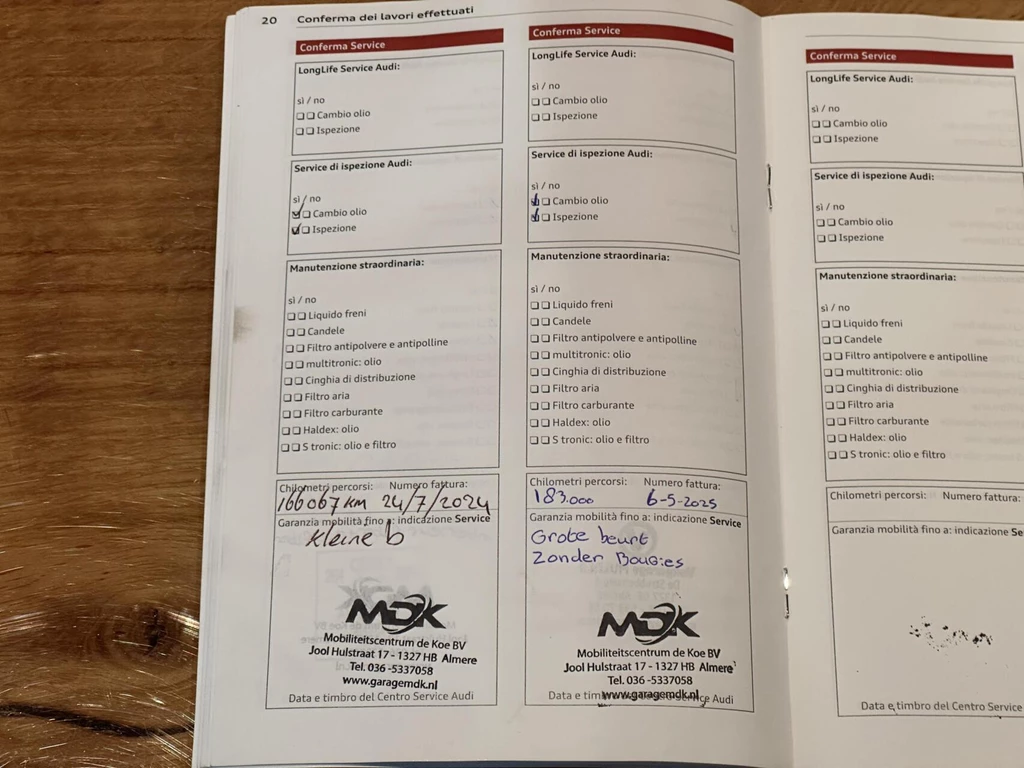 20 Conferma dei lavori effettuati
Conferma Service
LongLife Service Audi:
sì / no
❑ ❑ Cambio olio
❑ ❑ Ispezione
Service di ispezione Audi:
sì / no
☑ ❑ Cambio olio
☑ ❑ Ispezione
Manutenzione straordinaria:
sì / no
❑ ❑ Liquido freni
❑ ❑ Candele
❑ ❑ Filtro antipolvere e antipolline
❑ ❑ multitronic: olio
❑ ❑ Cinghia di distribuzione
❑ ❑ Filtro aria
❑ ❑ Filtro carburante
❑ ❑ Haldex: olio
❑ ❑ S tronic: olio e filtro
Chilometri percorsi: Numero fattura:
166067 km 24/7/2024
Garanzia mobilità fino a: indicazione Service
Kleine b
MDK
Mobiliteitscentrum de Koe BV
Jool Hulstraat 17 - 1327 HB Almere
Tel. 036 -5337058
www.garagemdk.nl
Data e timbro del Centro Service Audi
Conferma Service
LongLife Service Audi:
sì / no
❑ ❑ Cambio olio
❑ ❑ Ispezione
Service di ispezione Audi:
sì / no
☑ ❑ Cambio olio
☑ ❑ Ispezione
Manutenzione straordinaria:
sì / no
❑ ❑ Liquido freni
❑ ❑ Candele
❑ ❑ Filtro antipolvere e antipolline
❑ ❑ multitronic: olio
❑ ❑ Cinghia di distribuzione
❑ ❑ Filtro aria
❑ ❑ Filtro carburante
❑ ❑ Haldex: olio
❑ ❑ S tronic: olio e filtro
Chilometri percorsi: Numero fattura:
183.000 6-5-2025
Garanzia mobilità fino a: indicazione Service
Grote beurt
Zonder Bougies
MDK
Mobiliteitscentrum de Koe BV
Jool Hulstraat 17 - 1327 HB Almere
Tel. 036 -5337058
www.garagemdk.nl
Data e timbro del Centro Service Audi
Conferma Service
LongLife Service Audi:
sì / no
❑ ❑ Cambio olio
❑ ❑ Ispezione
Service di ispezione Audi:
sì / no
❑ ❑ Cambio olio
❑ ❑ Ispezione
Manutenzione straordinaria:
sì / no
❑ ❑ Liquido freni
❑ ❑ Candele
❑ ❑ Filtro antipolvere e antipolline
❑ ❑ multitronic: olio
❑ ❑ Cinghia di distribuzione
❑ ❑ Filtro aria
❑ ❑ Filtro carburante
❑ ❑ Haldex: olio
❑ ❑ S tronic: olio e filtro
Chilometri percorsi: Numero fattura:
Garanzia mobilità fino a: indicazione Se
Data e timbro del Centro Service